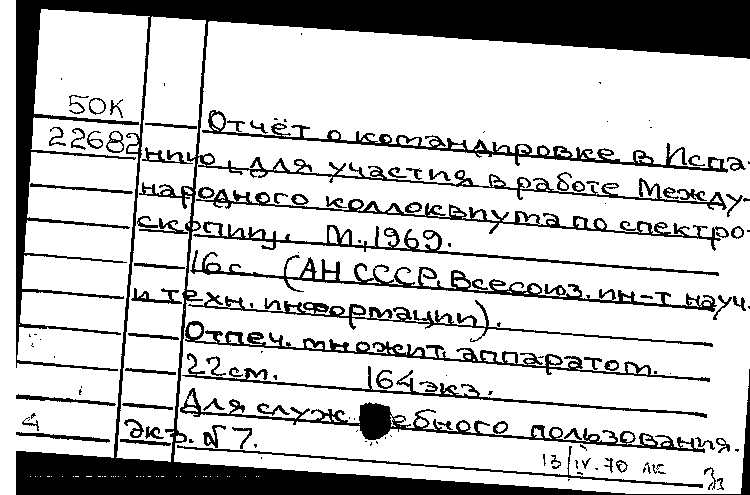 50К
22682
Отчёт о командировке в Испа-
нию, для участия в работе Между-
народного коллоквиума по спектро-
скопии. М., 1969.
16 с. (АН СССР. Всесоюз. ин-т науч.
и техн. информации).
Отпеч. множит. аппаратом.
22 см. 164 экз.
Для служебного пользования.
4 Экз. №7.
13/IV.70 лк